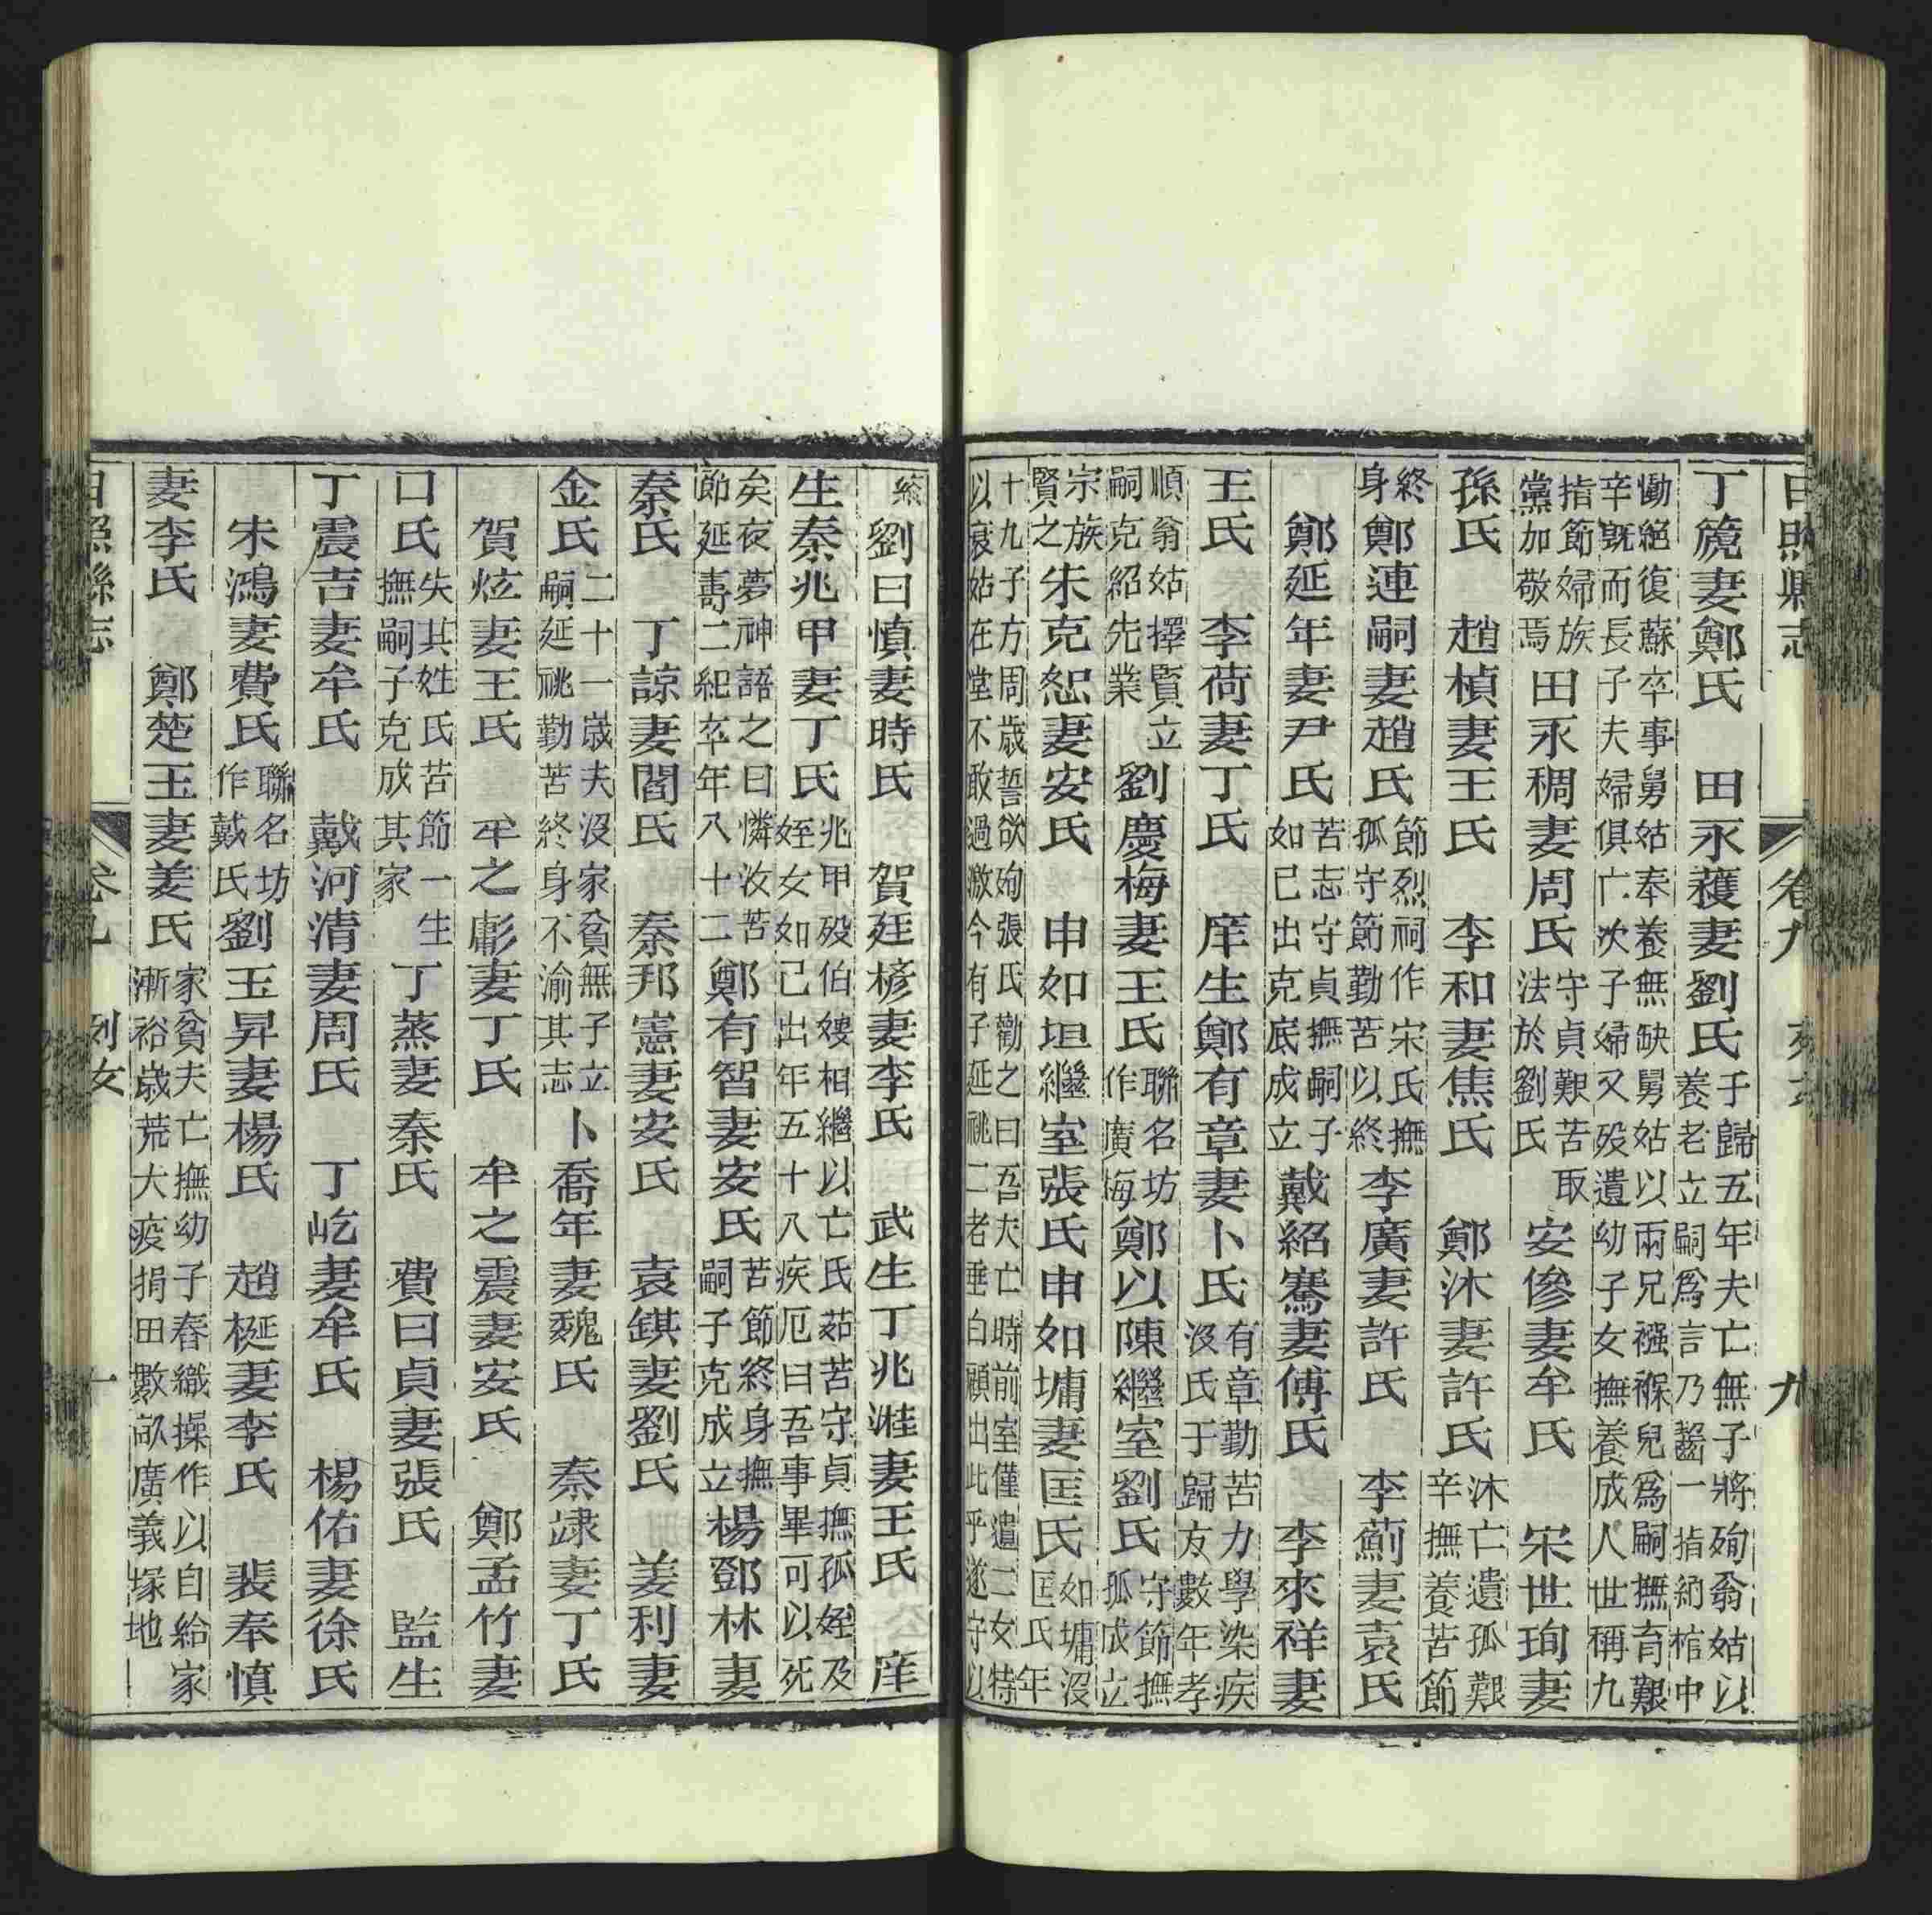 日照縣志 卷九 九
丁箎妻鄭氏 田永穫妻劉氏 于歸五年夫亡無子將殉翁姑以養老立嗣爲言乃齧一指納棺中
慟絕復蘇卒事舅姑奉養無缺舅姑以兩兄襁褓兒爲嗣撫育艱
辛既而長子夫婦俱亡次子婦又歿遺幼子女撫養成人世稱九
指節婦族黨加敬焉 田永稠妻周氏 守貞艱苦取法於劉氏 安儋妻牟氏 宋世珣妻
孫氏 趙楨妻王氏 李和妻焦氏 鄭沐妻許氏 沐亡遺孤艱辛撫養苦節
終身 鄭連嗣妻趙氏 節烈祠作宋氏撫孤守節勤苦以終 李廣妻許氏 李薊妻袁氏
鄭延年妻尹氏 苦志守貞撫嗣子如已出克底成立 戴紹騫妻傅氏 李來祥妻
王氏 李荷妻丁氏 庠生鄭有章妻卜氏 有章勤苦力學染疾沒氏于歸方數年孝
順翁姑擇賢立嗣克紹先業 劉慶梅妻王氏 聯名坊作廣梅 鄭以陳繼室劉氏 守節撫孤成立
宗族賢之 朱克恕妻安氏 申如坦繼室張氏申如墉妻匡氏 如墉沒匡氏年
十九子方周歲誓欲殉張氏勸之曰吾夫亡時前室僅遺二女特
以衰姑在堂不敢過激今有子延祧二老垂白顧出此乎遂守以
終 劉曰慎妻時氏 賀廷樑妻李氏 武生丁兆漄妻王氏 庠
生秦兆甲妻丁氏 兆甲歿伯嫂相繼以亡氏茹苦守貞撫孤姪及姪女如己出年五十八疾厄曰吾事畢可以死
矣夜夢神語之曰憐汝苦節延壽二紀卒年八十二 鄭有智妻安氏 苦節終身撫嗣子克成立 楊鄧林妻
秦氏 丁諒妻閻氏 秦邦憲妻安氏 袁錤妻劉氏 姜利妻
金氏 二十一歲夫沒家貧無子立嗣延祧勤苦終身不渝其志 卜喬年妻魏氏 秦逮妻丁氏
賀炫妻王氏 牟之彪妻丁氏 牟之震妻安氏 鄭孟竹妻
口氏 失其姓氏苦節一生撫嗣子克成其家 丁蒸妻秦氏 費曰貞妻張氏 監生
丁震吉妻牟氏 戴河清妻周氏 丁屹妻牟氏 楊佑妻徐氏
朱鴻妻費氏 聯名坊作戴氏 劉玉昇妻楊氏 趙梃妻李氏 裴奉慎
妻李氏 鄭楚玉妻姜氏 家貧夫亡撫幼子舂織操作以自給家漸裕歲荒大疫捐田數畝廣義塚地
日照縣志 卷九 列女